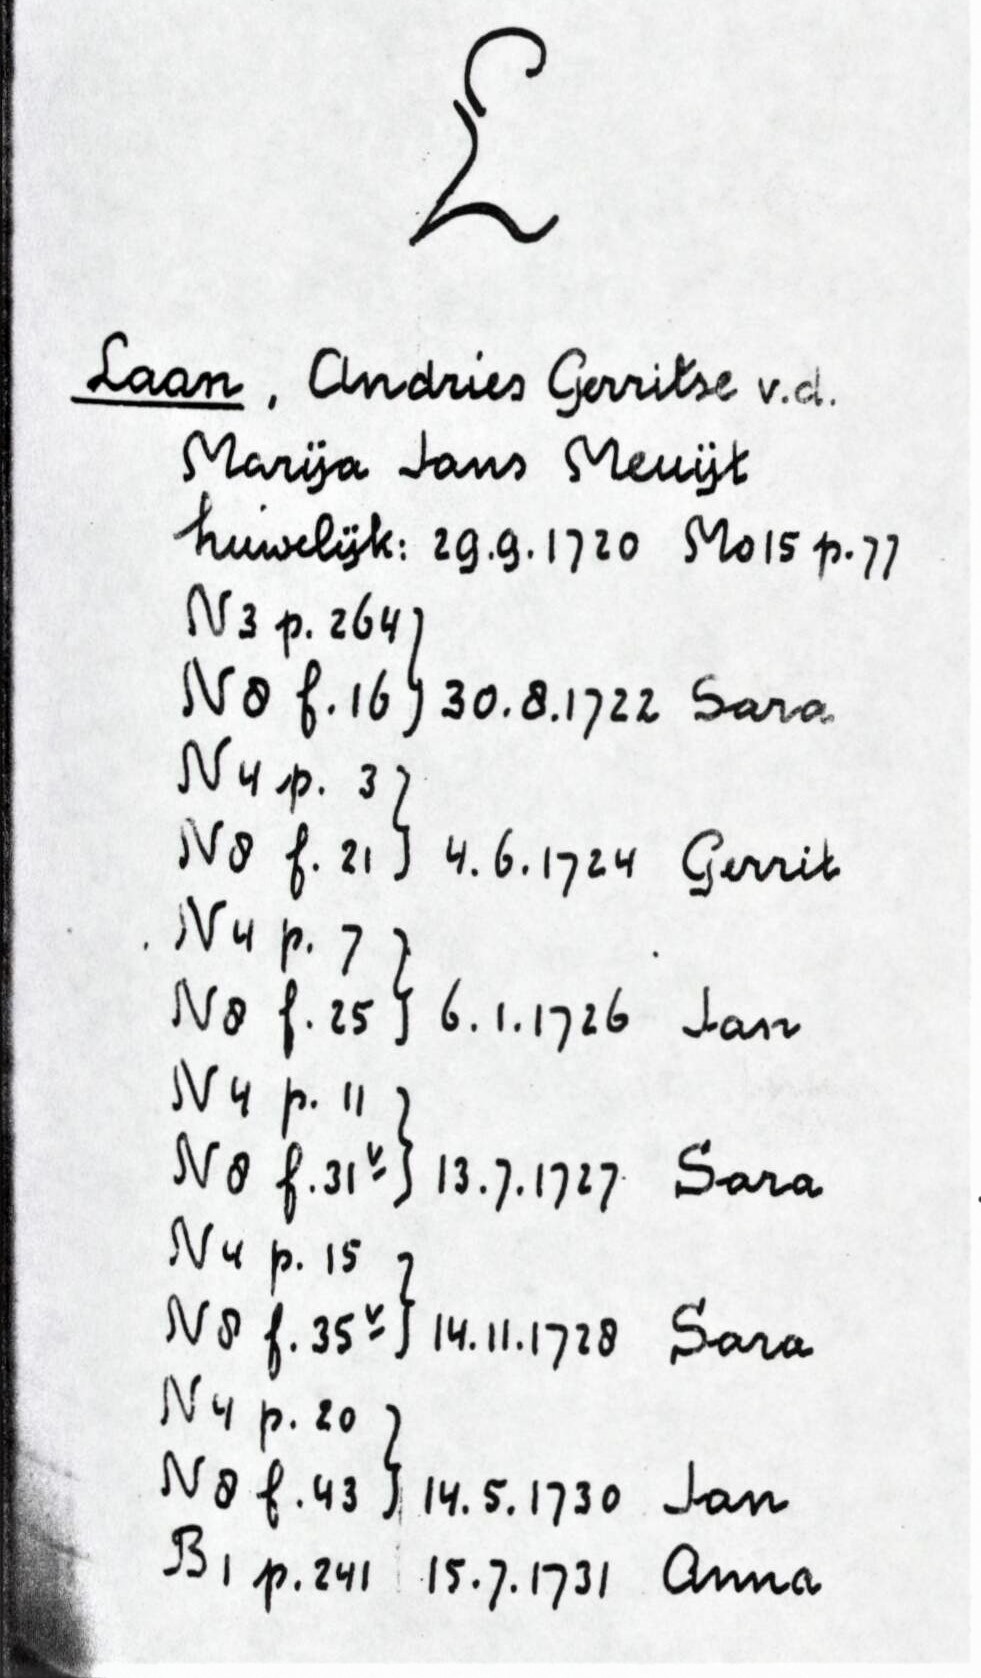 L
Laan, Andries Gerritse v.d.
Marija Jans Meuijt
huwelijk: 29.9.1720 Mo15 p.77
N3 p. 264 }
N8 f. 16 } 30.8.1722 Sara
N4 p. 3 }
N8 f. 21 } 4.6.1724 Gerrit
N4 p. 7 }
N8 f. 25 } 6.1.1726 Jan
N4 p. 11 }
N8 f. 31v } 13.7.1727 Sara
N4 p. 15 }
N8 f. 35v } 14.11.1728 Sara
N4 p. 20 }
N8 f. 43 } 14.5.1730 Jan
B1 p. 241 15.7.1731 Anna